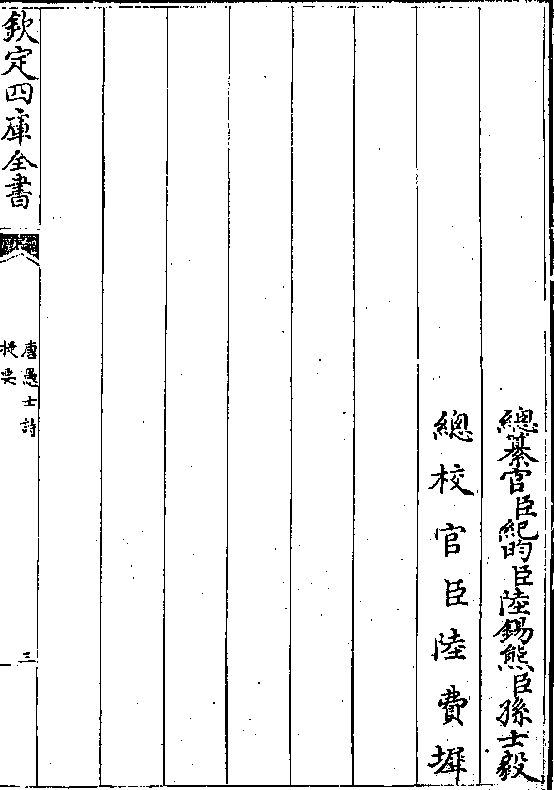 總纂官臣紀昀臣陸錫熊臣孫士毅
總校官臣陸費墀
欽定四庫全書
唐愚士詩
提要
三